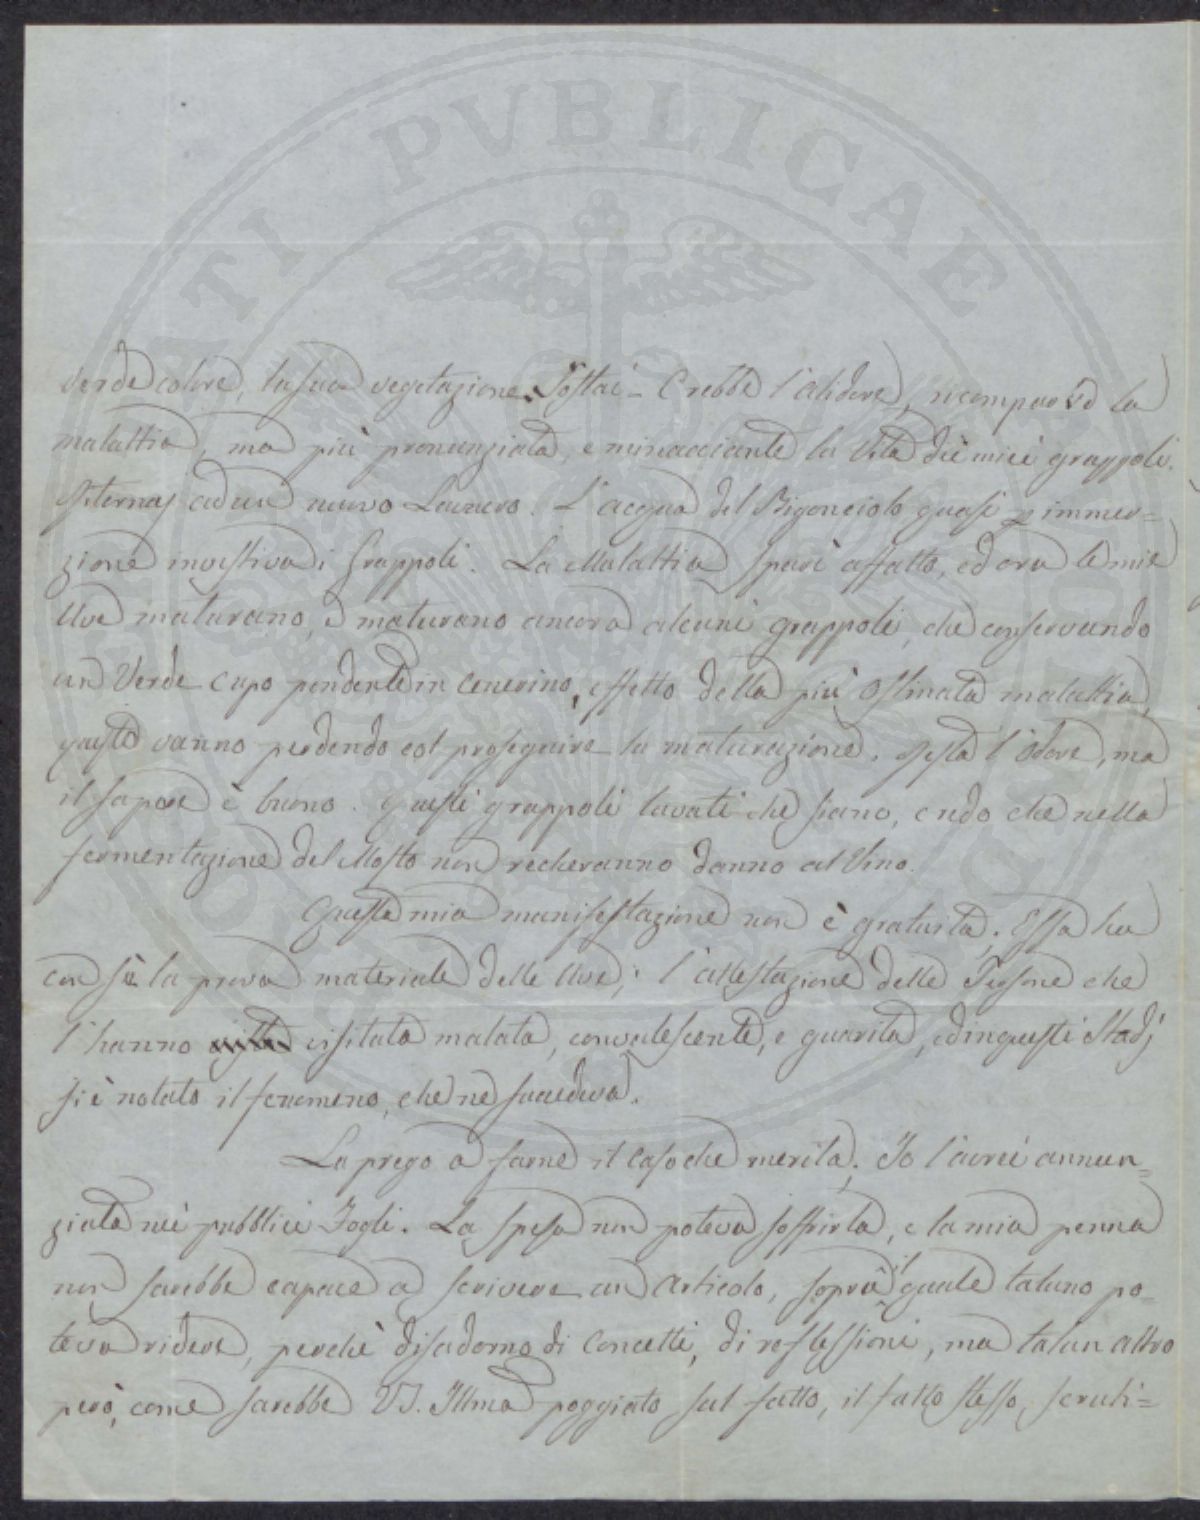 PUBLICAE
verde colore, la sua vegetazione. Sostai - Crebbe l'alidore, ricomparve la
malattia, ma più pronunziata, e minacciante la Vita dei miei grappoli.
Ritornai ad un nuovo Lavacro. L'acqua del Bigonciolo quasi p immer=
zione investiva i Grappoli. La Malattia sparì affatto, ed ora le mie
Uve maturano, e maturano ancora alcuni grappoli, che conservando
un Verde cupo pendente in cenerino, effetto della più ostinata malattia,
questo vanno perdendo col proseguire la maturazione. Resta l'odore, ma
il sapore è buono. Questi grappoli lavati che siano, credo che nella
fermentazione del Mosto non recheranno danno al Vino.
Questa mia manifestazione non è gratuita. Essa ha
con sè la prova materiale delle Uve; l'attestazione delle Persone che
l'hanno visitata malata, convalescente, e guarita, ed in questi Stadj
si è notato il fenomeno, che ne succedeva.
La prego a farne il caso che merita. Io l'avrei annun=
ziata nei pubblici Fogli. La spesa non poteva soffrirla, e la mia penna
non sarebbe capace a scrivere un Articolo, sopra il quale taluno po=
teva ridere, perchè disadorno di Concetti, di reflessioni, ma talun altro
però, come sarebbe VS. Illma poggiato sul fatto, il fatto stesso, scruti=